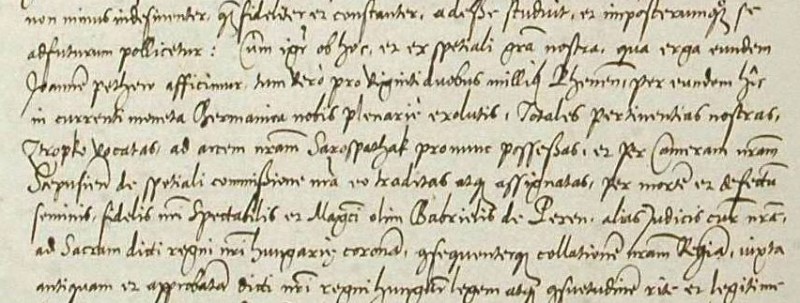 non minus indesinenter, q̃ fideliter et constanter, adesse studuit, et imposterumq̃ se
adfuturum pollicetur: Cum igr̃ ob hoc, et ex spetiali grã nostra, qua erga eundem
Joannẽ pethew afficimur, tum vero pro viginti duobus milliq̃ Rhenen̄, per eundem
in currenti moneta Germanica nobis plenarie exolutis, Totales pertinentias nostras,
Ztropko vocatas, ad arcem nr̃am Sarospathak pronunc possessas, et per Cameram nr̃am
Scepusien̄ de spetiali commissione nr̃a eo traditas atq̃ assignatas, per mortẽ et defectũ
seminis, fidelis nr̃i Spectabilis et Mag̃ci olim Gabrielis de Peren, alias Judicis Curię nr̃ę,
ad Sacram dicti regni nr̃i hungarię coronã, q̃sequenterq̃ collationẽ nr̃am Regiã, iuxta
antiquam et approbatã dicti nr̃i regni hung̃ legem atq̃ q̃suetudinẽ rite et legitime